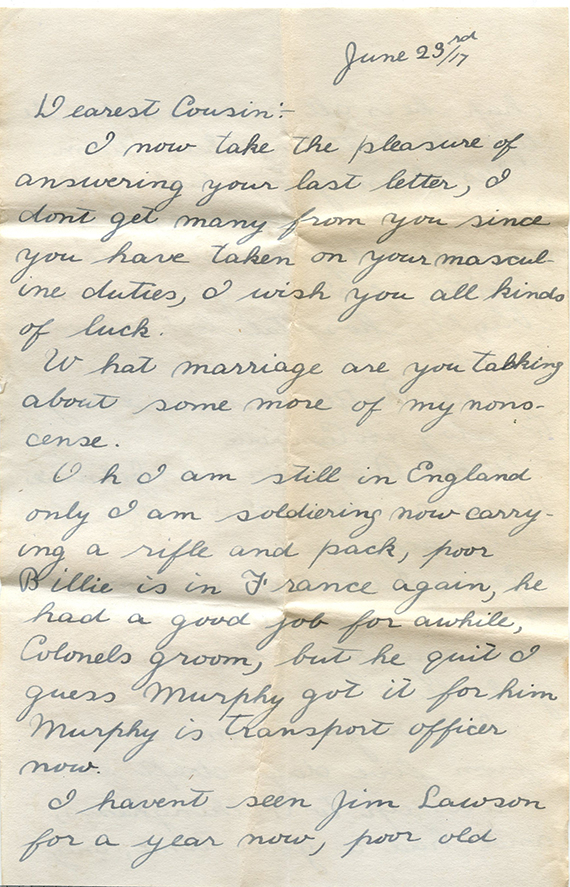 June 23rd/17
Dearest Cousin:-
I now take the pleasure of
answering your last letter, I
dont get many from you since
you have taken on your mascul-
ine duties, I wish you all kinds
of luck.
What marriage are you talking
about some more of my nons-
cense.
Oh I am still in England
only I am soldiering now carry-
ing a rifle and pack, poor
Billie is in France again, he
had a good job for awhile,
Colonels groom, but he quit I
guess Murphy got it for him
Murphy is transport officer
now.
I havent seen Jim Lawson
for a year now, poor old